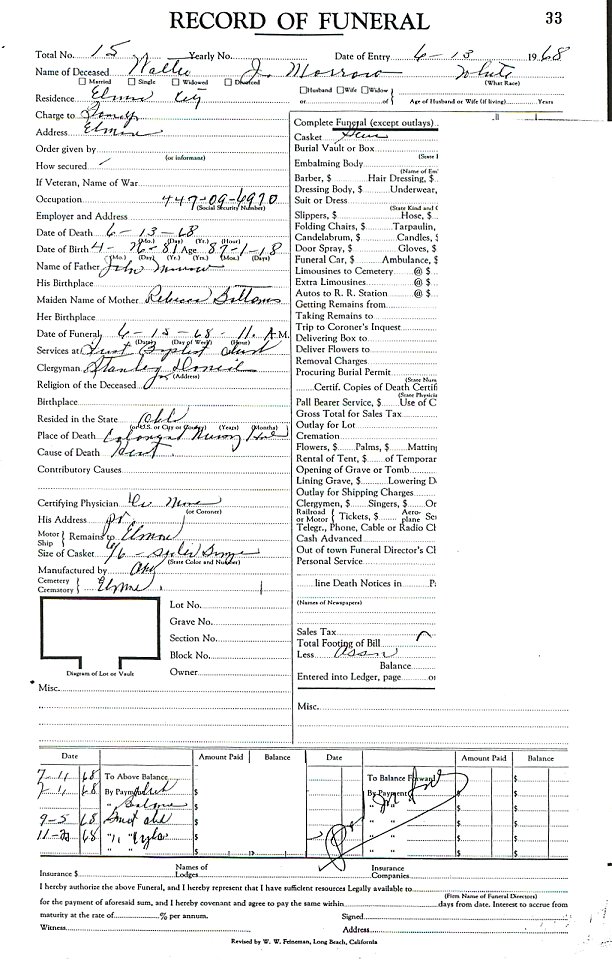 RECORD OF FUNERAL 33
Total No. 15 Yearly No. Date of Entry 6-13 1968
Name of Deceased J. Morrow White
Married Single Widowed Divorced (What Race)
Residence Elmore City
Husband Wife Widow
or of Age of Husband or Wife (if living) Years
Charge to Family
Address Elmore
Order given by
(or informant)
How secured
If Veteran, Name of War
Occupation 447-09-4970
(Social Security Number)
Employer and Address
Date of Death 6-13-68
(Mo.) (Day) (Yr.) (Hour)
Date of Birth 4-26-81 Age 87-1-18
(Mo.) (Day) (Yr.) (Yrs.) (Mos.) (Days)
Name of Father John Morrow
His Birthplace
Maiden Name of Mother Rebecca
Her Birthplace
Date of Funeral 6-15-68-11. A M.
(Date) (Day of Week) (Hour)
Services at First Baptist
Clergyman Stanley
(Address)
Religion of the Deceased
Birthplace
Resided in the State Okl
(or U.S. or City or County) (Years) (Months)
Place of Death Colonial
Cause of Death
Contributory Causes
Certifying Physician Dr
(or Coroner)
His Address
Motor Ship Remains to Elmore
Size of Casket 6/6 -
(State Color and Number)
Manufactured by
Cemetery
Crematory Elmore
Lot No.
Grave No.
Section No.
Block No.
Owner
Diagram of Lot or Vault
Misc.
Complete Funeral (except outlays)
Casket
Burial Vault or Box
(State
Embalming Body
(Name of Em
Barber, $ Hair Dressing, $
Dressing Body, $ Underwear,
Suit or Dress
(State Kind and C
Slippers, $ Hose, $
Folding Chairs, $ Tarpaulin,
Candelabrum, $ Candles, $
Door Spray, $ Gloves, $
Funeral Car, $ Ambulance, $
Limousines to Cemetery @ $
Extra Limousines @ $
Autos to R. R. Station @ $
Getting Remains from
Taking Remains to
Trip to Coroner's Inquest
Delivering Box to
Deliver Flowers to
Removal Charges
Procuring Burial Permit
(State Num
Certif. Copies of Death Certifi
(State Physicia
Pall Bearer Service, $ Use of C
Gross Total for Sales Tax
Outlay for Lot
Cremation
Flowers, $ Palms, $ Mattin
Rental of Tent, $ of Temporar
Opening of Grave or Tomb
Lining Grave, $ Lowering D
Outlay for Shipping Charges
Clergymen, $ Singers, $ Or
Railroad or Motor Tickets, $ Aeroplane Se
Telegr., Phone, Cable or Radio Cl
Cash Advanced
Out of town Funeral Director's Cl
Personal Service
line Death Notices in P
(Names of Newspapers)
Sales Tax
Total Footing of Bill
Less
Balance
Entered into Ledger, page o
Misc.
Date Amount Paid Balance Date Amount Paid Balance
7-1 68 To Above Balance $ To Balance Forward $
7-1 68 By Payment $ By Payment $
" $ " " $
9-5 68 $ " " $
11-22 68 " " $ " " $
" " $ " " $
Insurance $ Names of Lodges Insurance Companies
I hereby authorize the above Funeral, and I hereby represent that I have sufficient resources Legally available to
(Firm Name of Funeral Directors)
for the payment of aforesaid sum, and I hereby covenant and agree to pay the same within days from date. Interest to accrue from
maturity at the rate of % per annum. Signed
Witness Address
Revised by W. W. Feineman, Long Beach, California